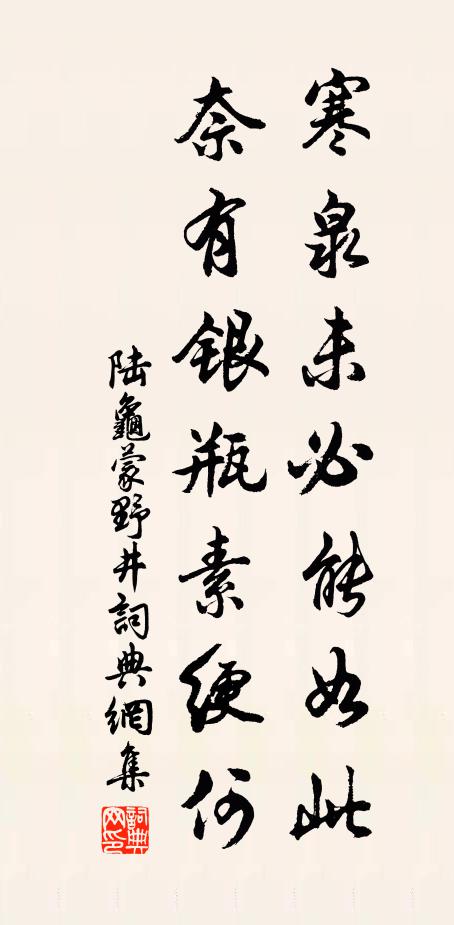 寒泉未必能如此
奈有銀瓶素綆何
陆龜蒙野井詞典網集
詞典网印